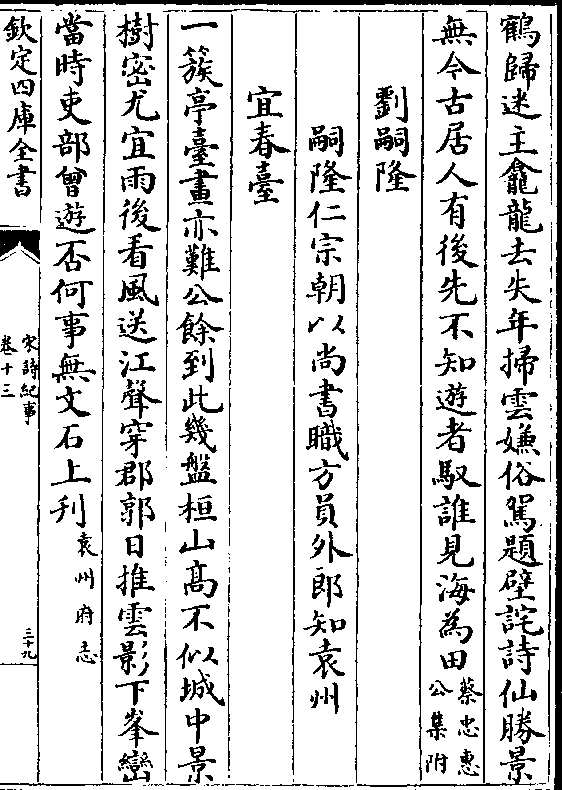 鶴歸迷主龕龍去失年掃雲嫌俗駕題壁詫詩仙勝景
無今古居人有後先不知遊者馭誰見海為田蔡忠惠公集附
劉嗣隆
嗣隆仁宗朝以尚書職方員外郎知袁州
宜春臺
一簇亭臺畫亦難公餘到此幾盤桓山高不似城中景
樹密尤宜雨後看風送江聲穿郡郭日推雲影下峯巒
當時吏部曾遊否何事無文石上刋袁州府志
欽定四庫全書
宋詩紀事
卷十三
三十九